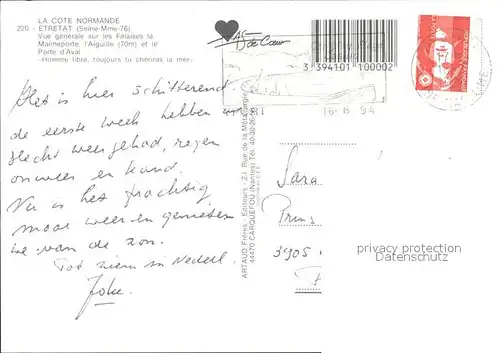 LA COTE NORMANDE
220 - ETRETAT (Seine-Mme-76)
Vue générale sur les Falaises la
Manneporte, l'Aiguille (70m) et le
Porte d'Aval
«Homme libre, toujours tu chériras la mer»
Het is hier schitterend.
de eerste week hebben
slecht weer gehad, regen
onweer en koud.
Nu is het prachtig
mooi weer en genieten
we van de zon.
Tot ziens in Nederl.
Joke.
ARTAUD Frères - Editeurs - Z.I. Rue de la Métallurgie
44470 CARQUEFOU (Nantes) Tél. 40-30-26
de Cœur
3 394101 100002
16-8 94
Sara
Prins
3905
privacy protection
Datenschutz